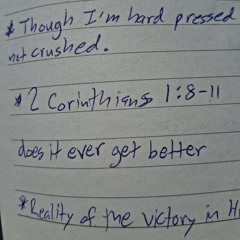 * Though I'm hard pressed
not crushed.
* 2 Corinthians 1:8-11
does it ever get better
* Reality of the victory in